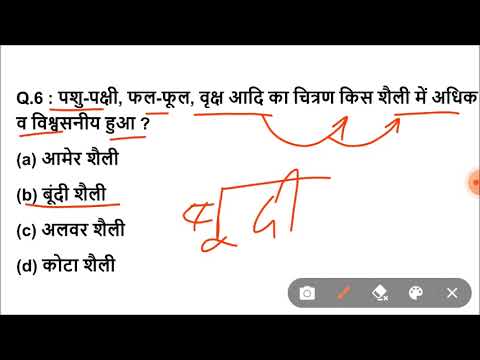 Q.6 : पशु-पक्षी, फल-फूल, वृक्ष आदि का चित्रण किस शैली में अधिक
व विश्वसनीय हुआ ?
(a) आमेर शैली
(b) बूंदी शैली
(c) अलवर शैली
(d) कोटा शैली
बूंदी